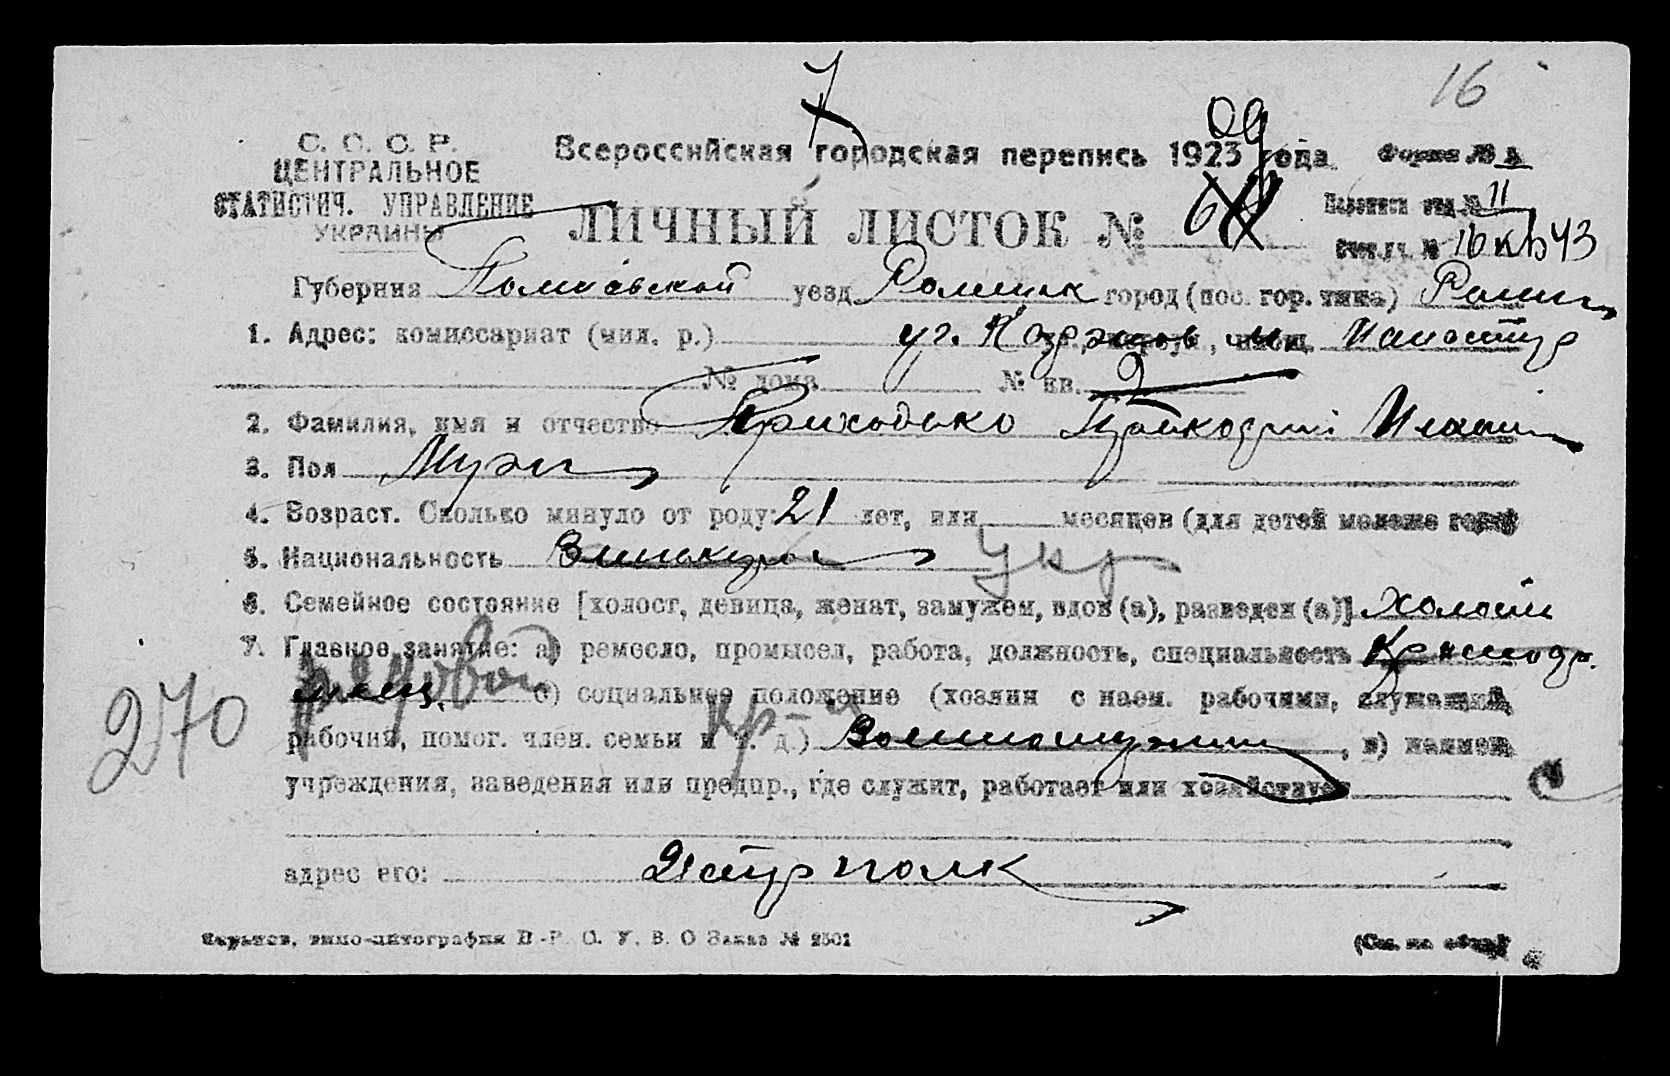 16
С. С. С. Р.
ЦЕНТРАЛЬНОЕ
СТАТИСТИЧ. УПРАВЛЕНИЕ
УКРАИНЫ
Всероссийская городская перепись 1923 года
Форма № А
ЛИЧНЫЙ ЛИСТОК №
№ 11
№ 16 кв 43
Губерния Полтавской уезд Роменск город (пос. гор. типа) Ромны
1. Адрес: комиссариат (мил. р.) уг.
№ дома № кв. 2
2. Фамилия, имя и отчество Приходько
3. Пол Мужч
4. Возраст. Сколько минуло от роду: 21 лет, или месяцев (для детей моложе года)
5. Национальность укр
6. Семейное состояние [холост, девица, женат, замужем, вдов (а), разведен (а)] Холост
7. Главное занятие: а) ремесло, промысел, работа, должность, специальность Красноар.
меец рядовой б) социальное положение (хозяин с наем. рабочими, служащий,
рабочий, помог. член. семьи и т. д.) Военнослужащ , в) наимен.
учреждения, заведения или предпр., где служит, работает или хозяйствует
адрес его: полк
270
Харьков, Заказ № 2501
(См. на обор.)